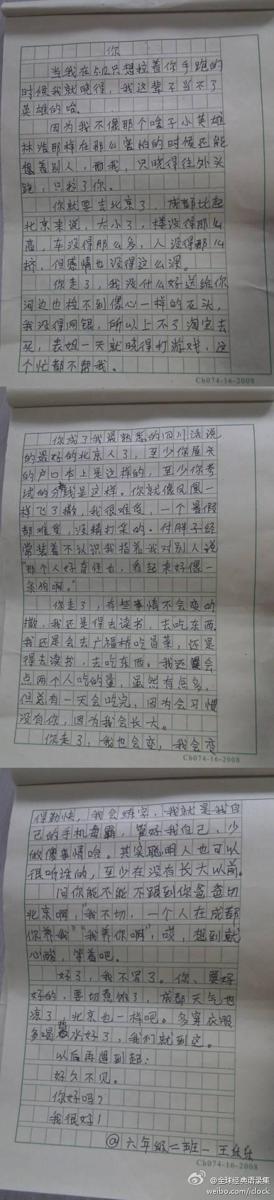 你
当我在512只想拉着你手跑的
时候我就晓得,我这辈子当不了
英雄的哈
因为我不像那个啥子小英雄
林浩那样在那么害怕的时候还能
想着别人,而我,只晓得往外头
跑,只拉了你。
你就要去北京了,成都比起
北京来说,太小了,楼没得那么
高,车没得那么多,人没得那么
挤,但感情也没得这么深。
你走了,我没什么好送给你
河边也捡不到像心一样的石头,
我没得网银,所以上不了淘宝去
买,表姐一天就晓得打游戏,这
个忙都不帮我。
Cb074-16-2008
你成了我最熟悉的四川话说
的最好的北京人了,至少你屋头
的户口本上是这样的,至少你考
试的分数线是这样。你就像凤凰一
样飞了撒,我很难受,一个暑假
都难受,没精打采的。付胖子经
常装着不认识我指着我对别人说
"那个人好奇怪也,看起来好像一
条狗啊。"
你走了,有些事情不会变的
撒,我还是得去读书,去吃东西
我还是会去广福桥吃冒菜,还是
得去读书,去吃东西。我还会
点两个人吃的量,虽然有点多,
但总有一天会吃完,因为会习惯
没有你,因为我会长大。
你走了,我也会变,我会变
Cb074-16-2008
得勤快,我会练字,我就是我自
己的手机屏霸,管好我自己,少
做傻事情哈。其实聪明人也可以
很听话的,至少在没有长大以前。
问你能不能不跟到你爸爸切
北京啊,"我不切,一个人在成都
你养我""我养你啊",哎,想到就
心酸,算着吧。
好了,我不写了。你,要好
好的,要切煮饭了,成都天气也
凉了,北京也一样吧。多穿衣服
多喝热水好了,我们就到这。
以后再遇到起:
好久不见。
你好吗?
我很好!
@六年级二班—王乐乐
Cb074-16-2008
@全球经典语录集
weibo.com/iclock